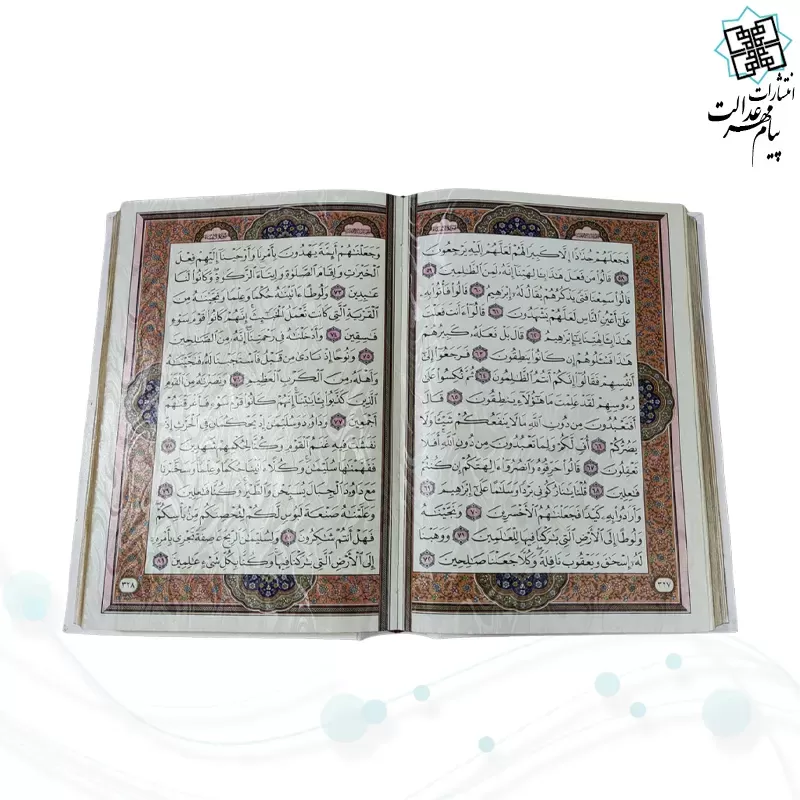 انتشارات
پیام مهر عدالت
فَجَعَلَهُمْ جُذَٰذًا إِلَّا كَبِيرًا لَّهُمْ لَعَلَّهُمْ إِلَيْهِ يَرْجِعُونَ
٥٨ قَالُوا۟ مَن فَعَلَ هَٰذَا بِـَٔالِهَتِنَآ إِنَّهُۥ لَمِنَ ٱلظَّٰلِمِينَ ٥٩
قَالُوا۟ سَمِعْنَا فَتًى يَذْكُرُهُمْ يُقَالُ لَهُۥٓ إِبْرَٰهِيمُ ٦٠ قَالُوا۟ فَأْتُوا۟ بِهِۦ
عَلَىٰٓ أَعْيُنِ ٱلنَّاسِ لَعَلَّهُمْ يَشْهَدُونَ ٦١ قَالُوٓا۟ ءَأَنتَ فَعَلْتَ
هَٰذَا بِـَٔالِهَتِنَا يَٰٓإِبْرَٰهِيمُ ٦٢ قَالَ بَلْ فَعَلَهُۥ كَبِيرُهُمْ
هَٰذَا فَسْـَٔلُوهُمْ إِن كَانُوا۟ يَنطِقُونَ ٦٣ فَرَجَعُوٓا۟ إِلَىٰٓ
أَنفُسِهِمْ فَقَالُوٓا۟ إِنَّكُمْ أَنتُمُ ٱلظَّٰلِمُونَ ٦٤ ثُمَّ نُكِسُوا۟ عَلَىٰ
رُءُوسِهِمْ لَقَدْ عَلِمْتَ مَا هَٰٓؤُلَآءِ يَنطِقُونَ ٦٥ قَالَ
أَفَتَعْبُدُونَ مِن دُونِ ٱللَّهِ مَا لَا يَنفَعُكُمْ شَيْـًٔا وَلَا
يَضُرُّكُمْ ٦٦ أُفٍّ لَّكُمْ وَلِمَا تَعْبُدُونَ مِن دُونِ ٱللَّهِ أَفَلَا
تَعْقِلُونَ ٦٧ قَالُوا۟ حَرِّقُوهُ وَٱنصُرُوٓا۟ ءَالِهَتَكُمْ إِن كُنتُمْ
فَٰعِلِينَ ٦٨ قُلْنَا يَٰنَارُ كُونِى بَرْدًا وَسَلَٰمًا عَلَىٰٓ إِبْرَٰهِيمَ ٦٩
وَأَرَادُوا۟ بِهِۦ كَيْدًا فَجَعَلْنَٰهُمُ ٱلْأَخْسَرِينَ ٧٠ وَنَجَّيْنَٰهُ
وَلُوطًا إِلَى ٱلْأَرْضِ ٱلَّتِى بَٰرَكْنَا فِيهَا لِلْعَٰلَمِينَ ٧١ وَوَهَبْنَا
لَهُۥٓ إِسْحَٰقَ وَيَعْقُوبَ نَافِلَةً وَكُلًّا جَعَلْنَا صَٰلِحِينَ ٧٢
٣٢٧
وَجَعَلْنَٰهُمْ أَئِمَّةً يَهْدُونَ بِأَمْرِنَا وَأَوْحَيْنَآ إِلَيْهِمْ فِعْلَ
ٱلْخَيْرَٰتِ وَإِقَامَ ٱلصَّلَوٰةِ وَإِيتَآءَ ٱلزَّكَوٰةِ وَكَانُوا۟ لَنَا
عَٰبِدِينَ ٧٣ وَلُوطًا ءَاتَيْنَٰهُ حُكْمًا وَعِلْمًا وَنَجَّيْنَٰهُ مِنَ
ٱلْقَرْيَةِ ٱلَّتِى كَانَت تَّعْمَلُ ٱلْخَبَٰٓئِثَ إِنَّهُمْ كَانُوا۟ قَوْمَ سَوْءٍ
فَٰسِقِينَ ٧٤ وَأَدْخَلْنَٰهُ فِى رَحْمَتِنَآ إِنَّهُۥ مِنَ ٱلصَّٰلِحِينَ
٧٥ وَنُوحًا إِذْ نَادَىٰ مِن قَبْلُ فَٱسْتَجَبْنَا لَهُۥ فَنَجَّيْنَٰهُ
وَأَهْلَهُۥ مِنَ ٱلْكَرْبِ ٱلْعَظِيمِ ٧٦ وَنَصَرْنَٰهُ مِنَ ٱلْقَوْمِ
ٱلَّذِينَ كَذَّبُوا۟ بِـَٔايَٰتِنَآ إِنَّهُمْ كَانُوا۟ قَوْمَ سَوْءٍ فَأَغْرَقْنَٰهُمْ
أَجْمَعِينَ ٧٧ وَدَاوُۥدَ وَسُلَيْمَٰنَ إِذْ يَحْكُمَانِ فِى ٱلْحَرْثِ إِذْ
نَفَشَتْ فِيهِ غَنَمُ ٱلْقَوْمِ وَكُنَّا لِحُكْمِهِمْ شَٰهِدِينَ ٧٨
فَفَهَّمْنَٰهَا سُلَيْمَٰنَ وَكُلًّا ءَاتَيْنَا حُكْمًا وَعِلْمًا وَسَخَّرْنَا
مَعَ دَاوُۥدَ ٱلْجِبَالَ يُسَبِّحْنَ وَٱلطَّيْرَ وَكُنَّا فَٰعِلِينَ ٧٩
وَعَلَّمْنَٰهُ صَنْعَةَ لَبُوسٍ لَّكُمْ لِتُحْصِنَكُم مِّنۢ بَأْسِكُمْ
فَهَلْ أَنتُمْ شَٰكِرُونَ ٨٠ وَلِسُلَيْمَٰنَ ٱلرِّيحَ عَاصِفَةً تَجْرِى بِأَمْرِهِۦٓ
إِلَى ٱلْأَرْضِ ٱلَّتِى بَٰرَكْنَا فِيهَا وَكُنَّا بِكُلِّ شَىْءٍ عَٰلِمِينَ ٨١
٣٢٨